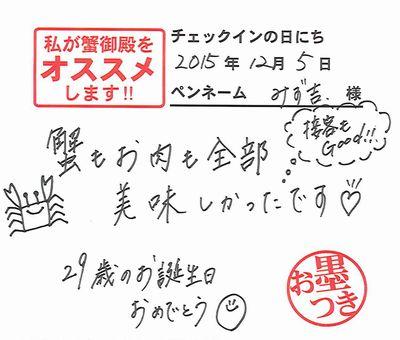 私が蟹御殿を
オススメ
します!!
チェックインの日にち
2015年12月5日
ペンネーム みず吉. 様
接客も
Good!!!
蟹もお肉も全部
美味しかったです♡
29歳のお誕生日
おめでとう☺
お墨つき